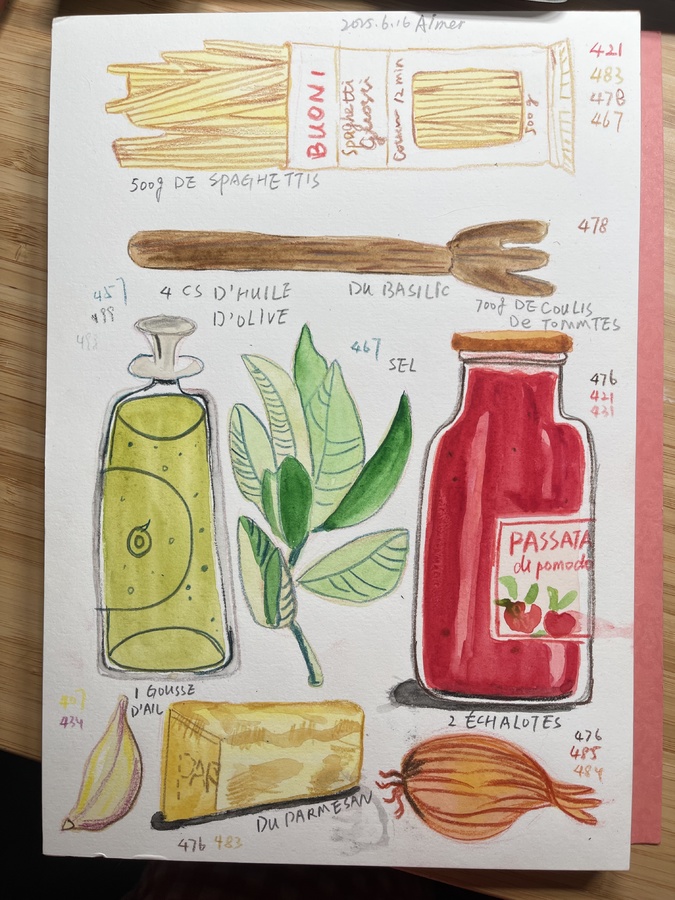 2025.6.16 Aimer
421
483
478
467
BUONI
Spaghetti
Grossi
Cottura 12 min
500g
500g DE SPAGHETTIS
478
457
499
493
4 CS D'HUILE
D'OLIVE
DU BASILIC
700g DE COULIS
De TOMMTES
467
SEL
476
421
431
PASSATA
di pomodo
1 GOUSSE
D'AIL
407
434
PAR
DU PARMESAN
476 483
2 ÉCHALOTES
476
485
484